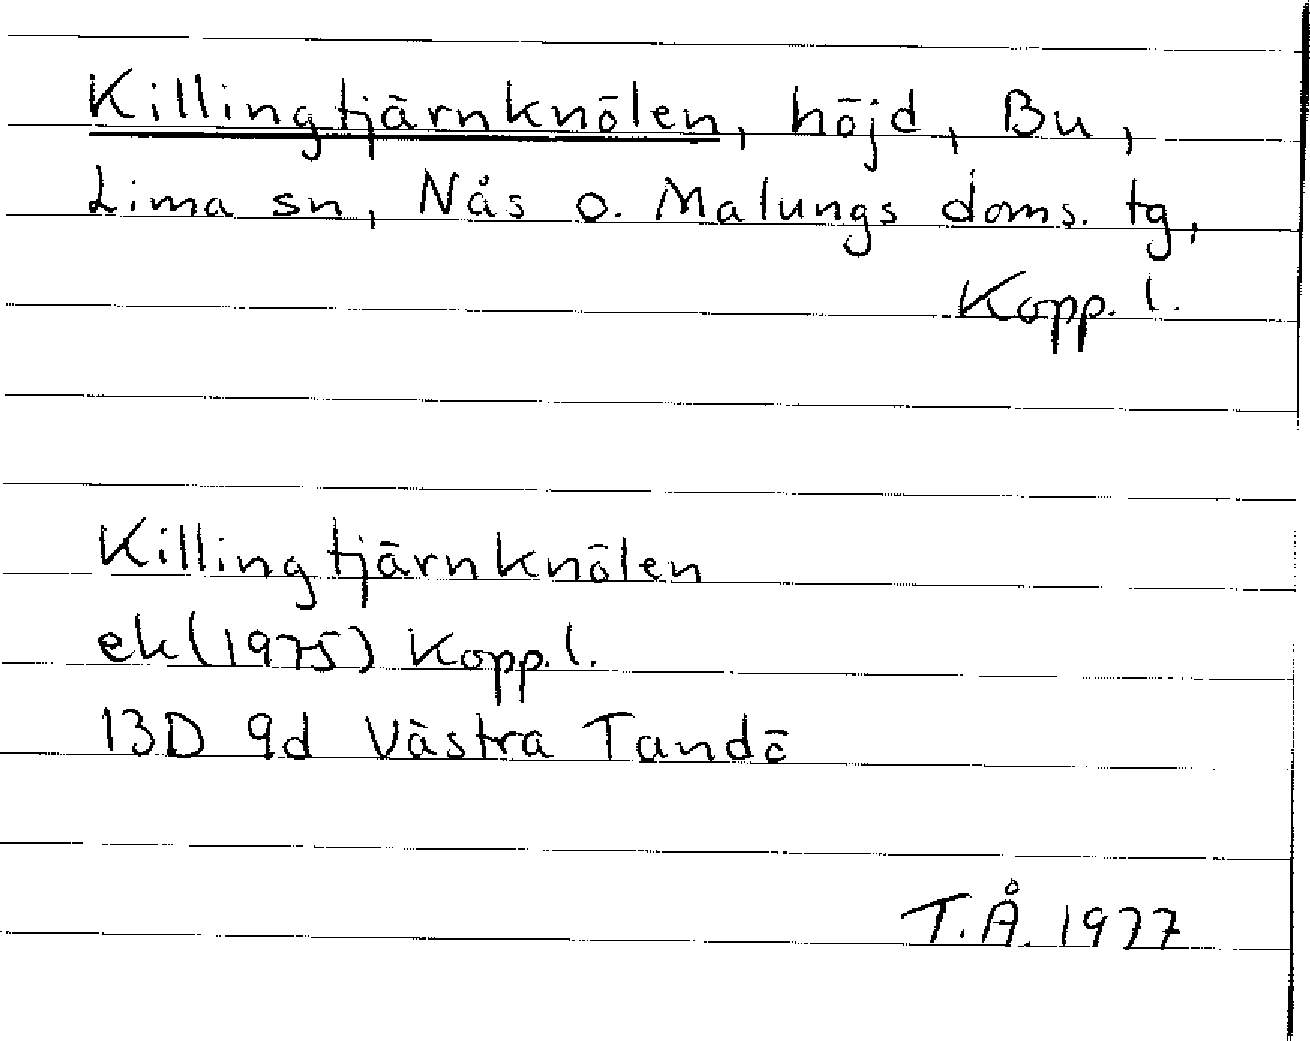 Killingtjärnknölen, höjd, Bu,
Lima sn, Nås o. Malungs doms. tg,
Kopp. l.
Killingtjärnknölen
ek (1975) Kopp. l.
13D 9d Västra Tandö
T.Å. 1977